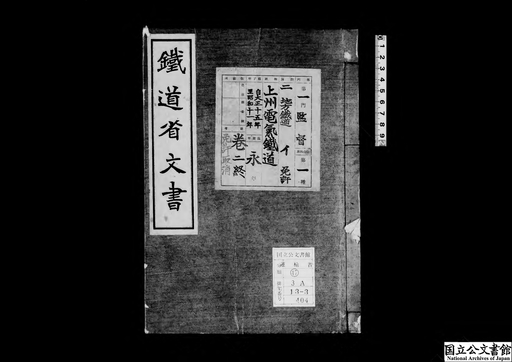 鐵道省文書
第一門 監督
第一種
二 地方鐵道
イ 免許
上州電氣鐵道
自大正十五年
至昭和十一年
永
卷二終
国立公文書館
3A
13-3
404
1 2 3 4 5 6 7 8 9
国立公文書館
National Archives of Japan